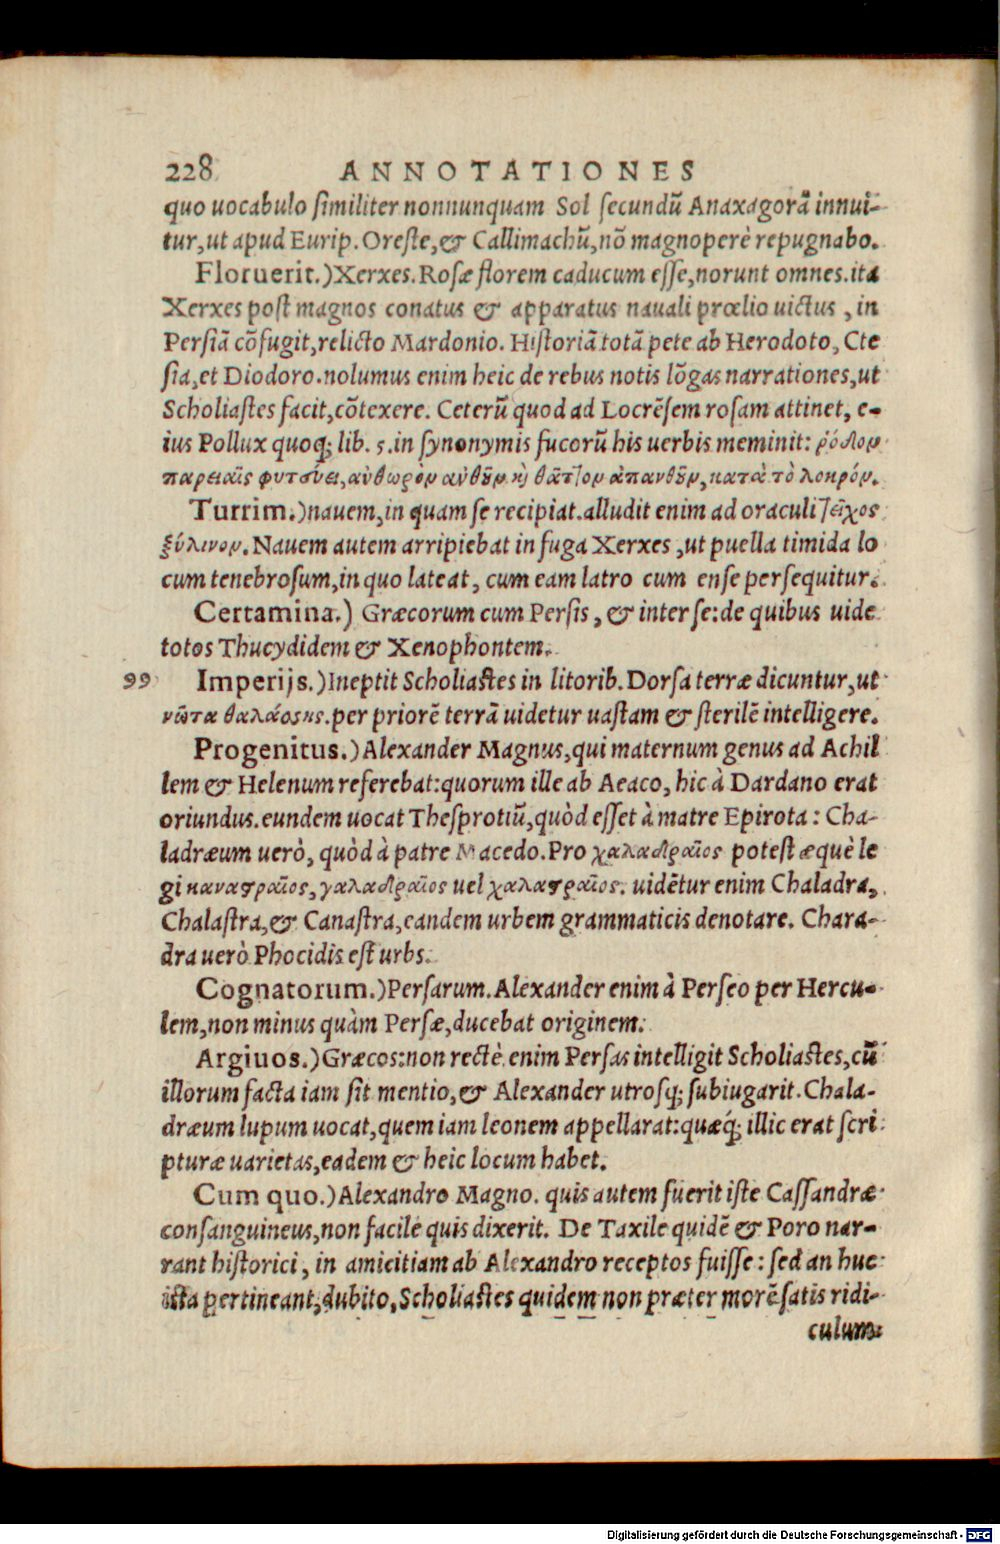 228 ANNOTATIONES
quo uocabulo similiter nonnunquam Sol secundũ Anaxagorã innui-
tur, ut apud Eurip. Oreste, & Callimachũ, nõ magnoperè repugnabo.
Floruerit.) Xerxes. Rosæ florem caducum esse, norunt omnes. ita
Xerxes post magnos conatus & apparatus nauali prœlio uictus, in
Persiã cõfugit, relicto Mardonio. Historiã totã pete ab Herodoto, Cte
sia, et Diodoro. nolumus enim heic de rebus notis lõgas narrationes, ut
Scholiastes facit, cõtexere. Ceterũ quod ad Locrẽsem rosam attinet, e-
ius Pollux quoq; lib. 5. in synonymis fucorũ his uerbis meminit: ῥόδον
παρειαῖς φυτεύει, αὐθωρὸν αὐθοῦν κỳ θᾶττον ἀπανθοῦν, κατὰ τὸ λοκρόν.
Turrim.) nauem, in quam se recipiat. alludit enim ad oraculi τεῖχος
ξύλινον. Nauem autem arripiebat in fuga Xerxes, ut puella timida lo
cum tenebrosum, in quo lateat, cum eam latro cum ense persequitur.
Certamina.) Græcorum cum Persis, & inter se: de quibus uide
totos Thucydidem & Xenophontem.
99 Imperijs.) Ineptit Scholiastes in litorib. Dorsa terræ dicuntur, ut
νῶτα θαλάσσης. per priorẽ terrã uidetur uastam & sterilẽ intelligere.
Progenitus.) Alexander Magnus, qui maternum genus ad Achil
lem & Helenum referebat: quorum ille ab Aeaco, hic à Dardano erat
oriundus. eundem uocat Thesprotiũ, quòd esset à matre Epirota: Cha-
ladræum uerò, quòd à patre Macedo. Pro χαλαδραῖος potest æquè le
gi καναςραῖος, γαλαδραῖος uel χαλαςραῖος. uidẽtur enim Chaladra,
Chalastra, & Canastra, eandem urbem grammaticis denotare. Chara-
dra uerò Phocidis est urbs.
Cognatorum.) Persarum. Alexander enim à Perseo per Hercu-
lem, non minus quàm Persæ, ducebat originem.
Argiuos.) Græcos: non rectè enim Persas intelligit Scholiastes, cũ
illorum facta iam sit mentio, & Alexander utrosq; subiugarit. Chala-
dræum lupum uocat, quem iam leonem appellarat: quæq́; illic erat scri
pturæ uarietas, eadem & heic locum habet.
Cum quo.) Alexandro Magno. quis autem fuerit iste Cassandræ
consanguineus, non facilè quis dixerit. De Taxile quidẽ & Poro nar-
rant historici, in amicitiam ab Alexandro receptos fuisse: sed an huc
ista pertineant, dubito, Scholiastes quidem non præter morẽ satis ridi-
culum:
Digitalisierung gefördert durch die Deutsche Forschungsgemeinschaft - DFG